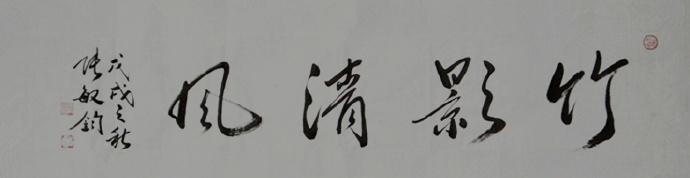 竹影清风
戊戌之秋
张敏钧